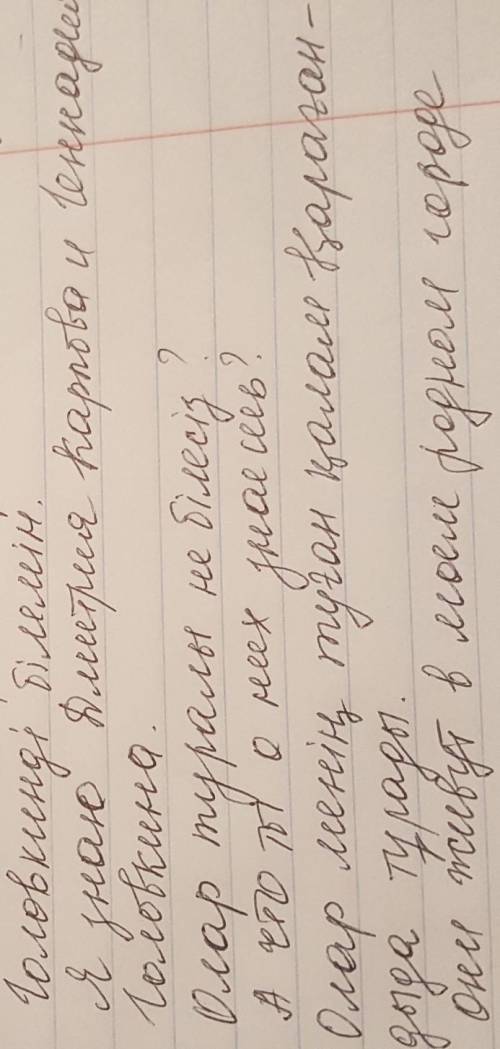 Головкинді білемін.
Я знаю Дмитрия Карпова и Геннадия
Головкина.
Олар туралы не білесіз?
А что ты о них знаешь?
Олар менің туған қалам Қараған-
дыда тұрады.
Они живут в моем родном городе